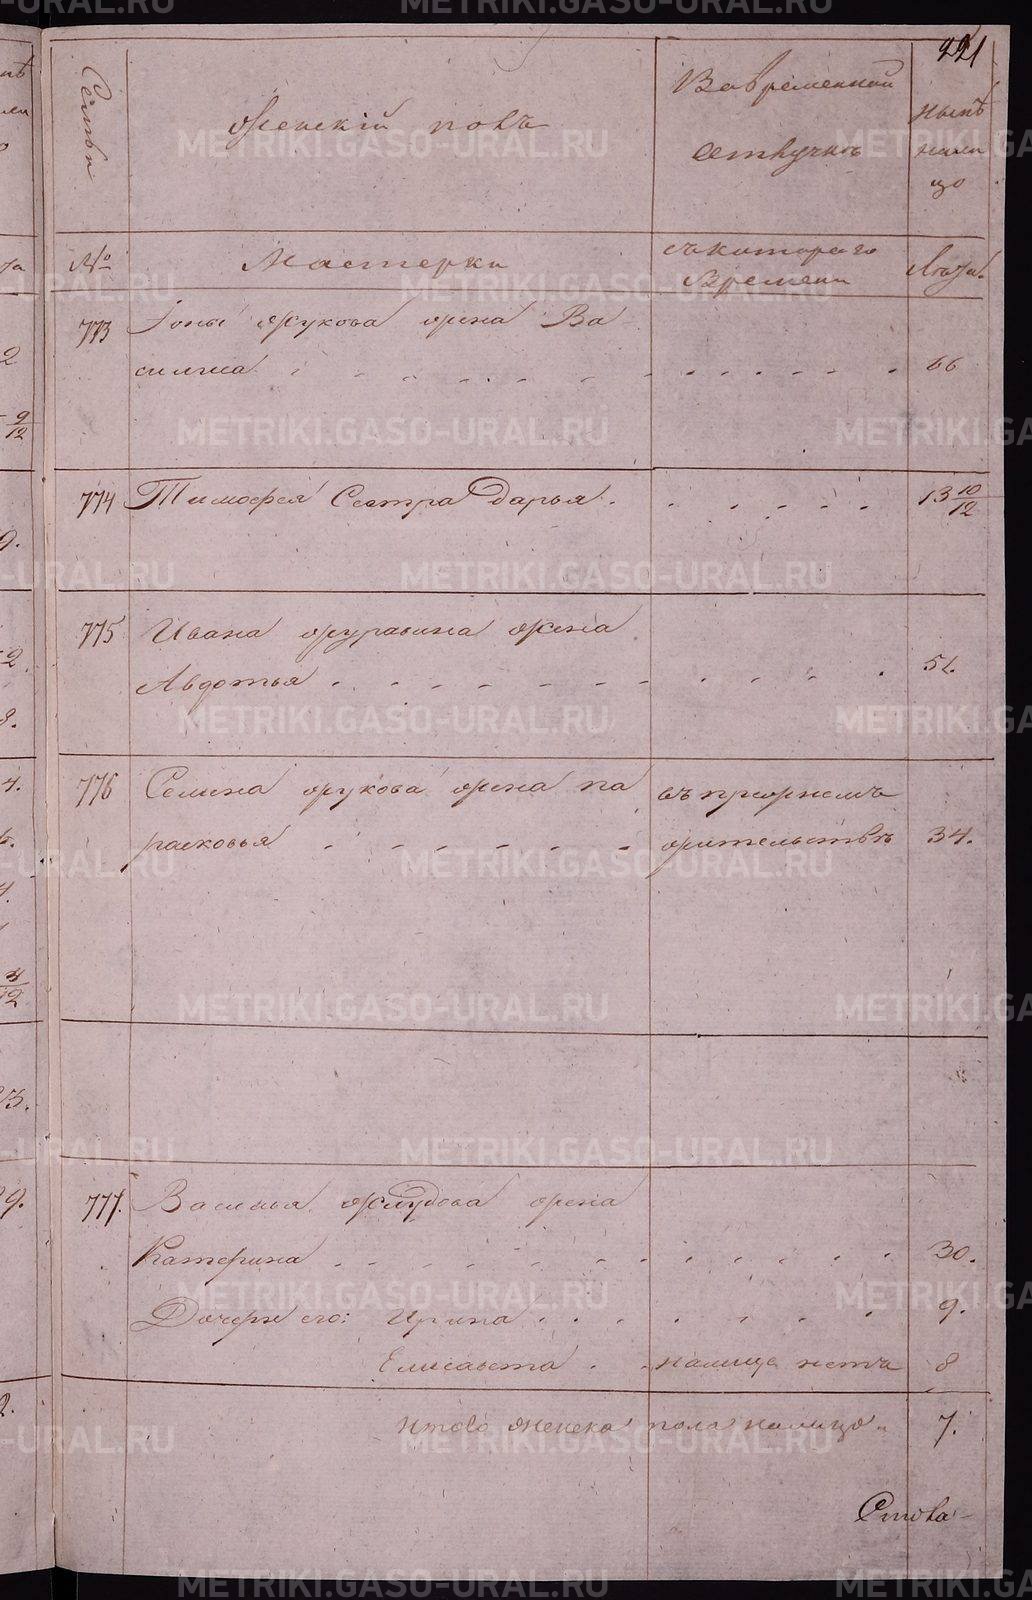 221
Семьи
Женскій полъ
Во временной
отлучкѣ
нынѣ
нали
цо
№
Мастерки
съ котораго
времени
лѣта
773
Іоны Жукова жена Ва
силиса
66
774
Тимофея Сестра Дарья
13 10/12
775
Ивана Журавина жена
Авдотья
51.
776
Семена Жукова жена па
въ прежнемъ
расковья
жительствѣ
34.
777.
Василья жена
Катерина
30.
Дочери его: Ирина
9.
Елисавета
налицо нетъ
8
Итого женска пола налицо
7.
METRIKI.GASO-URAL.RU